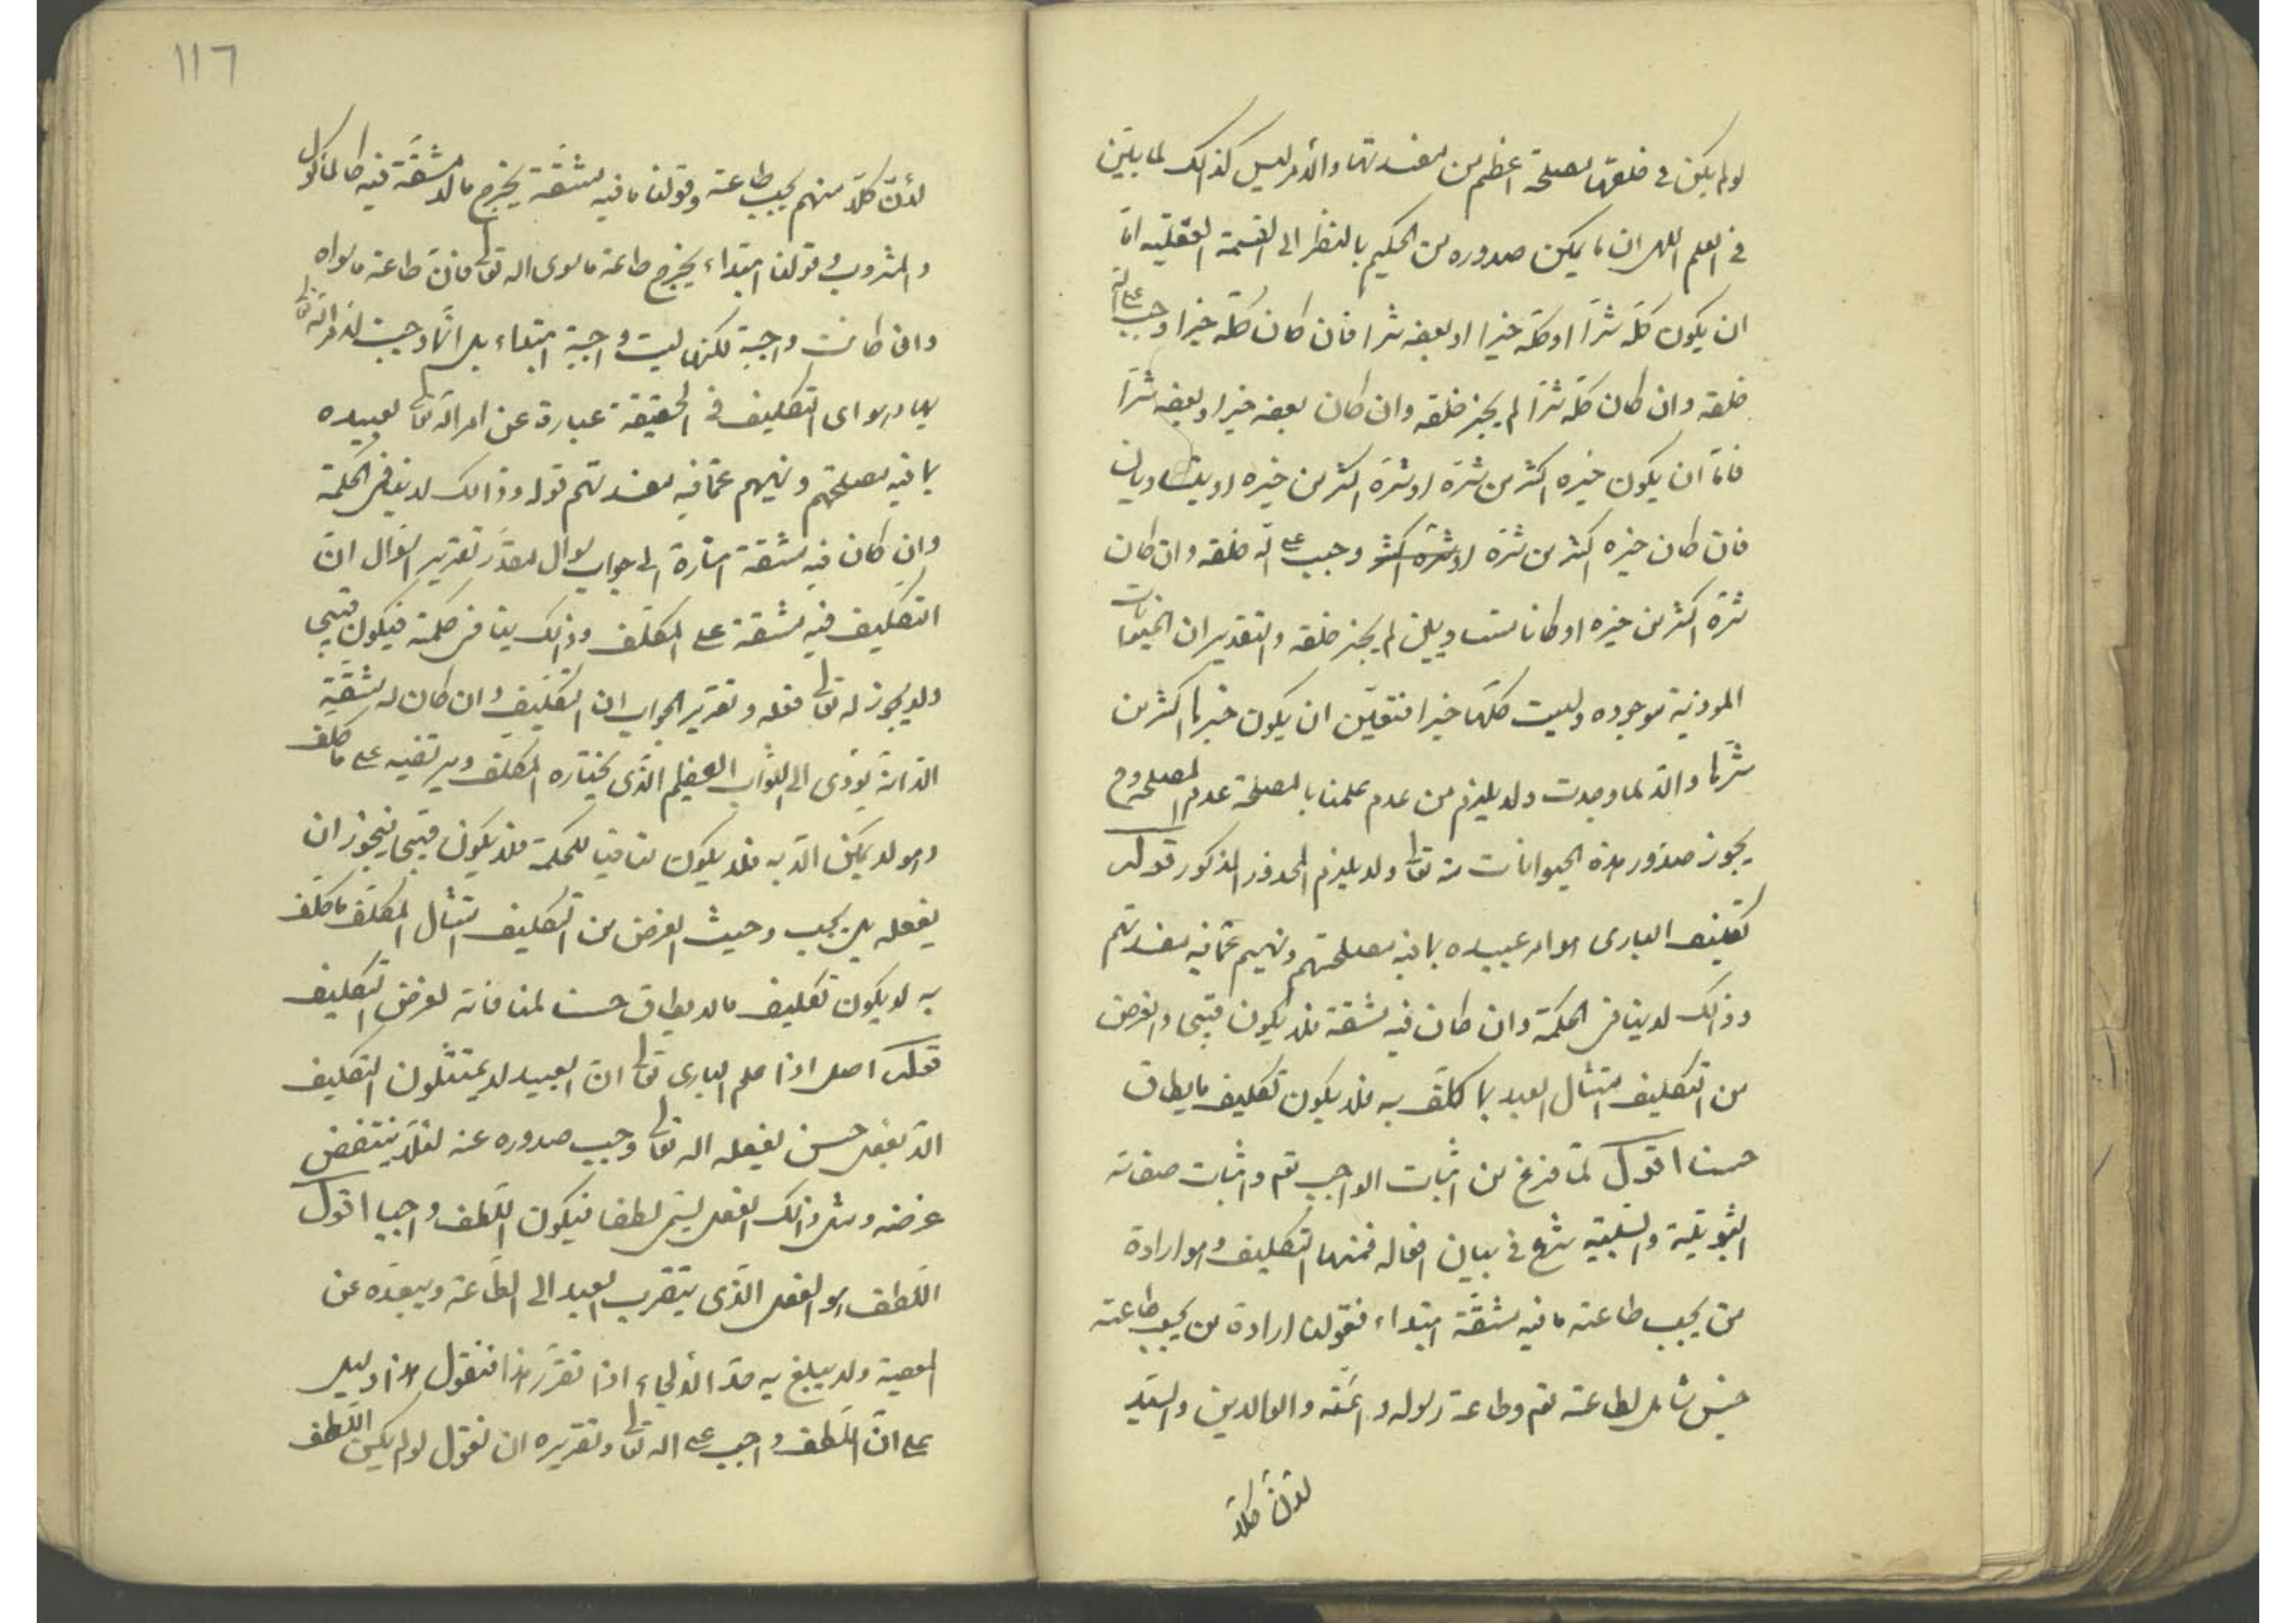 لو لم يكن في خلقها مصلحة اعظم من مفسدتها والأمر ليس كذالك لما بيّن
في العلم اللهى ان ما يمكن صدوره من الحكيم بالنظر الى القسمة العقليه امّا
ان يكون كلّه شرّا او كلّه خيرا او بعضه شرا فان كان كلّه خيرا وجب على اللّه
خلقه وان كان كلّه شرّا لم يجز خلقه وان كان بعضه خيرا وبعضه شرّا
فامّا ان يكون خيره اكثر من شرّه او شرّه اكثر من خيره او يتساويان
فان كان خيره اكثر من شرّه او شرّه اكثر وجب على اللّه خلقه وان كان
شرّه اكثر من خيره او كانا متساويين لم يجز خلقه والتقدير ان الحيوانات
الموذية موجوده وليست كلّها خيرا فتعيّن ان يكون خيرها اكثر من
شرّها والّا لما وجدت ولا يلزم من عدم علمنا بالمصلحة عدم المصلحة وح
يجوز صدور هذه الحيوانات منه تعالى ولا يلزم المحذور المذكور قوله
تكليف البارى هو امر عبيده بما فيه مصلحتهم ونهيهم عمّا فيه مفسدتهم
وذالك لا ينافى الحكمة وان كان فيه مشقة فلا يكون قبيحا والغرض
من التكليف امتثال العبد بما كلّف به فلا يكون تكليف ما يطاق
حسنا اقول لمّا فرغ من اثبات الواجب تعم واثبات صفاته
الثبوتيّة والسّلبيّه شرع في بيان افعاله فمنها التكليف وهو ارادة
من يجب طاعته ما فيه مشقّة ابتداء فقولنا ارادة من يجب طاعته
جنس شامل لطاعته تعم وطاعة رسوله وائمّته والوالدين والسيّد
لأنّ كلّا
١١٦
لأنّ كلّا منهم يجب طاعته وقولنا ما فيه مشقّة يخرج ما لا مشقّة فيه كالمأكول
والمشروب وقولنا ابتداء يخرج طاعة ما سوى اللّه تعالى فانّ طاعة ما سواه
وان كانت واجبة لكنها ليست واجبة ابتداء بل انّما وجبت لامر اللّه تعالى
بها وهو اى التكليف في الحقيقة عبارة عن امر اللّه تعالى لعبيده
بما فيه مصلحتهم ونهيهم عمّا فيه مفسدتهم قوله وذالك لا ينافى الحكمة
وان كان فيه مشقة اشارة الى جواب سوال مقدّر تقرير السّوال انّ
التكليف فيه مشقة على المكلّف وذالك ينافى حكمته فيكون قبيحا
ولا يجوز له تعالى فعله وتقرير الجواب ان التّكليف وان كان له مشقّة
الّا انه يؤدى الى الثّواب العظيم الّذى يختاره المكلف ويرتضيه على ما كلف
وهو لا يمكن الّا به فلا يكون منافيا للحكمة فلا يكون قبيحا فيجوز ان
يفعله بل يجب وحيث الغرض من التّكليف امتثال المكلّف ما كلّف
به لا يكون تكليف ما لا يطاق حسنا لمنافاته لغرض التّكليف
قوله اصل اذا علم البارى تعالى انّ العبيد لا يمتثلون التكليف
الّا بفعل حسن يفعله اللّه تعالى وجب صدوره عنه لئلّا ينتقض
غرضه ومثل ذالك الفعل ليسمّى لطفا فيكون اللّطف واجبا اقول
اللّطف هو الفعل الّذى يتقرب العبد الى الطّاعة ويبعّده عن
المعصية ولا يبلغ به حدّ الألجاء اذا تقرّر هذا فنقول هذا دليل
على انّ اللّطف واجب على اللّه تعالى وتقريره ان نقول لو لم يكن اللّطف